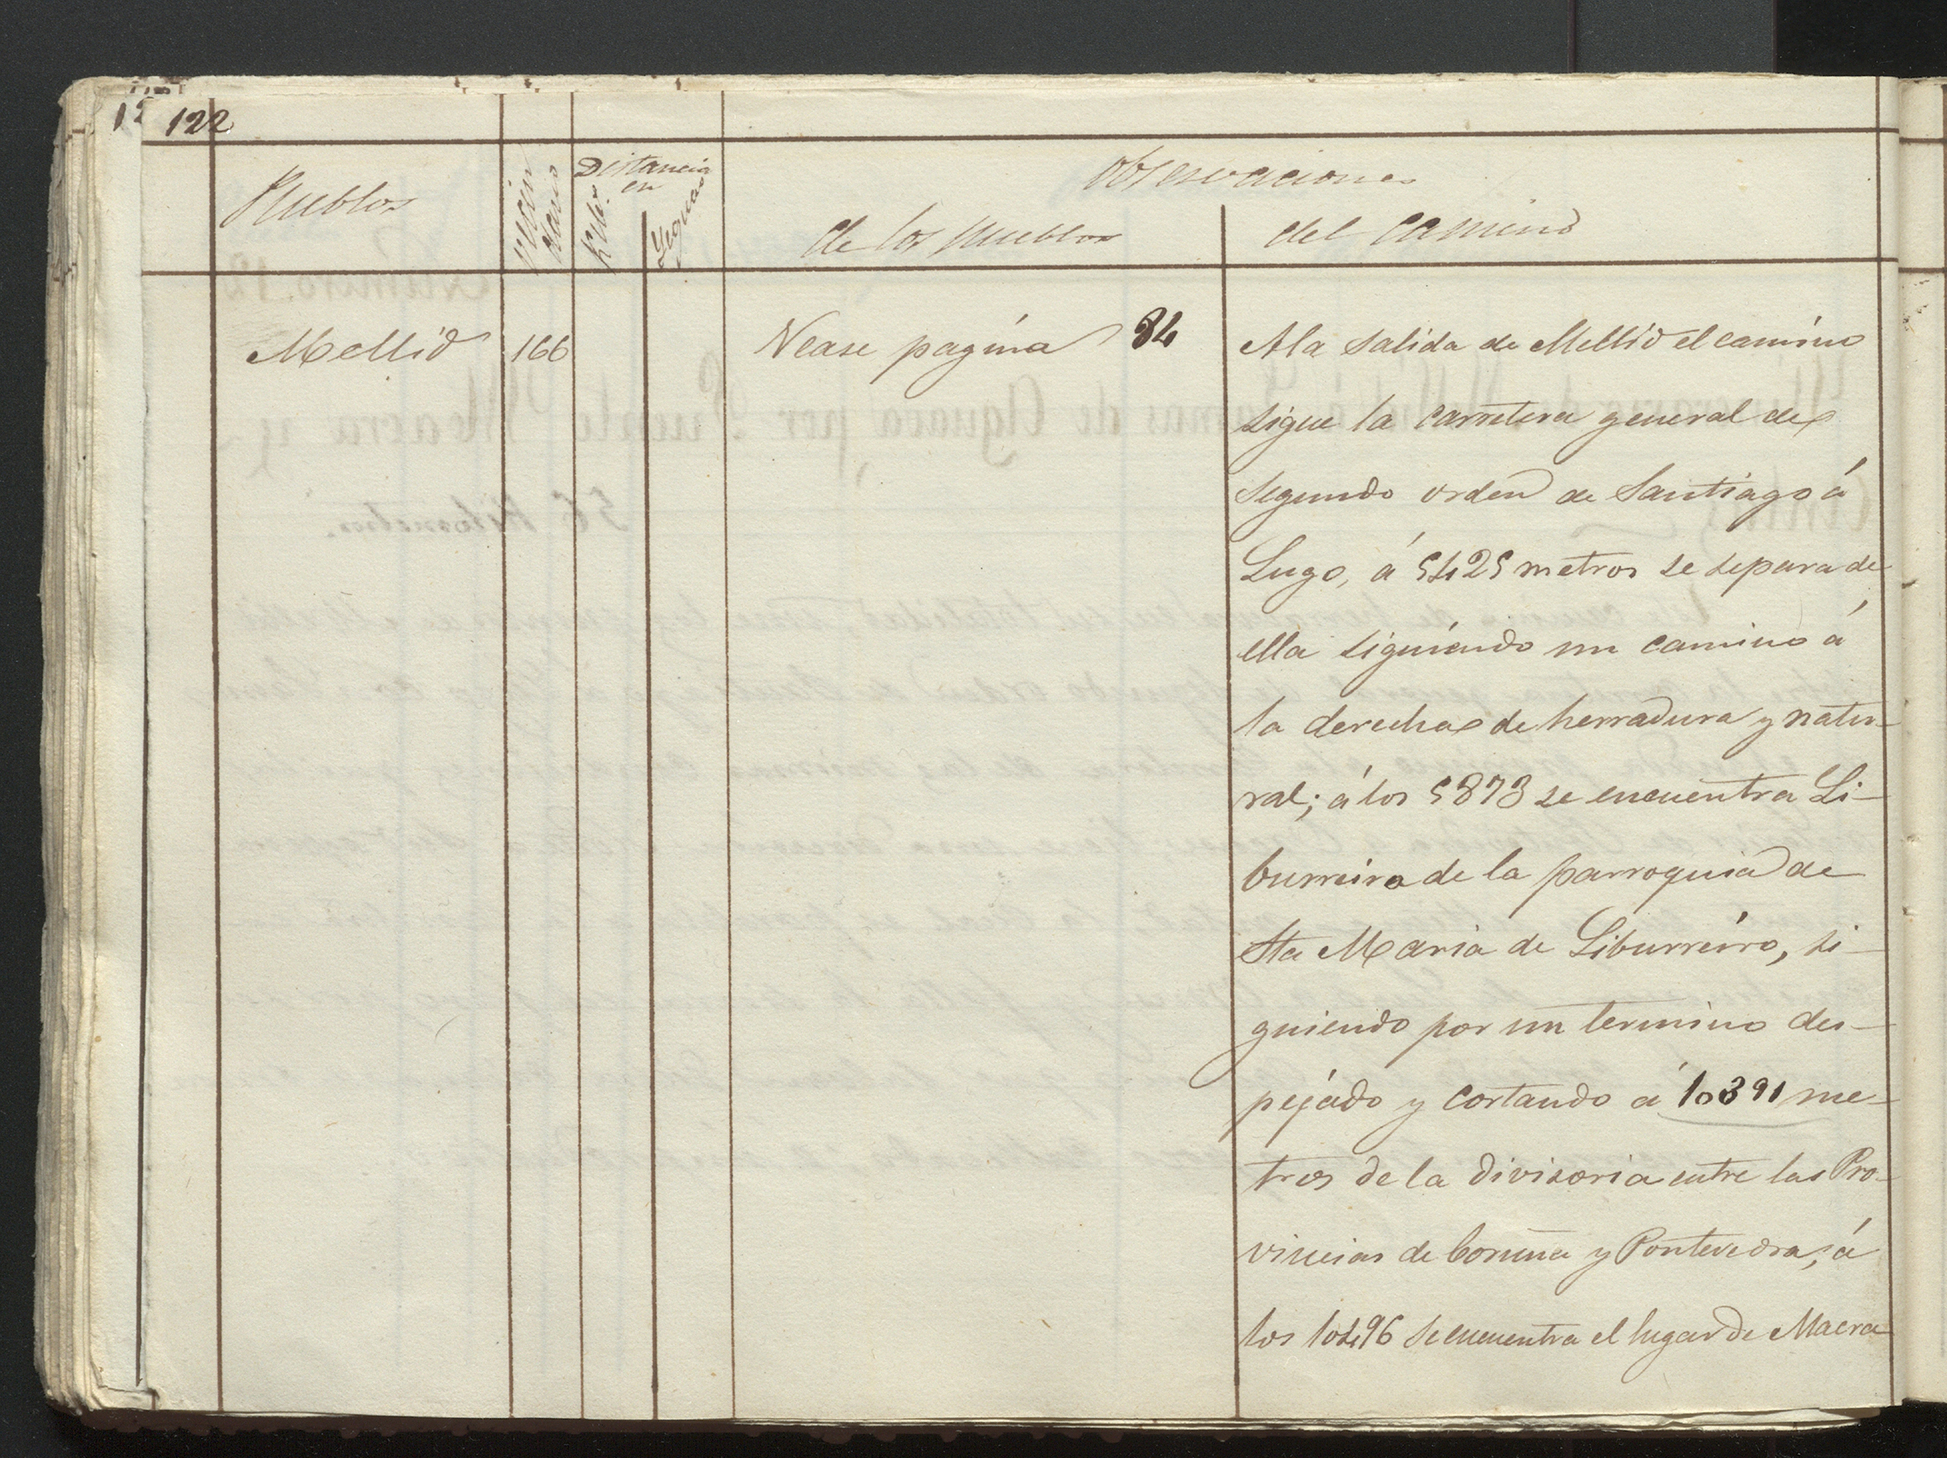 122
Pueblos
Vecin
dario
Distancia
en
Kilós.
Leguas
Observaciones
de los pueblos
del camino
Mellid 166 Vease pagina 84
A la salida de Mellid el camino
sigue la carretera general de
segundo orden de Santiago á
Lugo, á 5425 metros se separa de
ella siguiendo un camino á
la derecha de herradura y natu-
ral; á los 5873 se encuentra Li-
burreiro de la parroquia de
Sta Maria de Liburreiro, si-
guiendo por un termino des-
pejádo y cortando á 10391 me-
tros de la divisoria entre las Pro-
vincias de Coruña y Pontevedra, á
los 10496 se encuentra el lugar de Maera